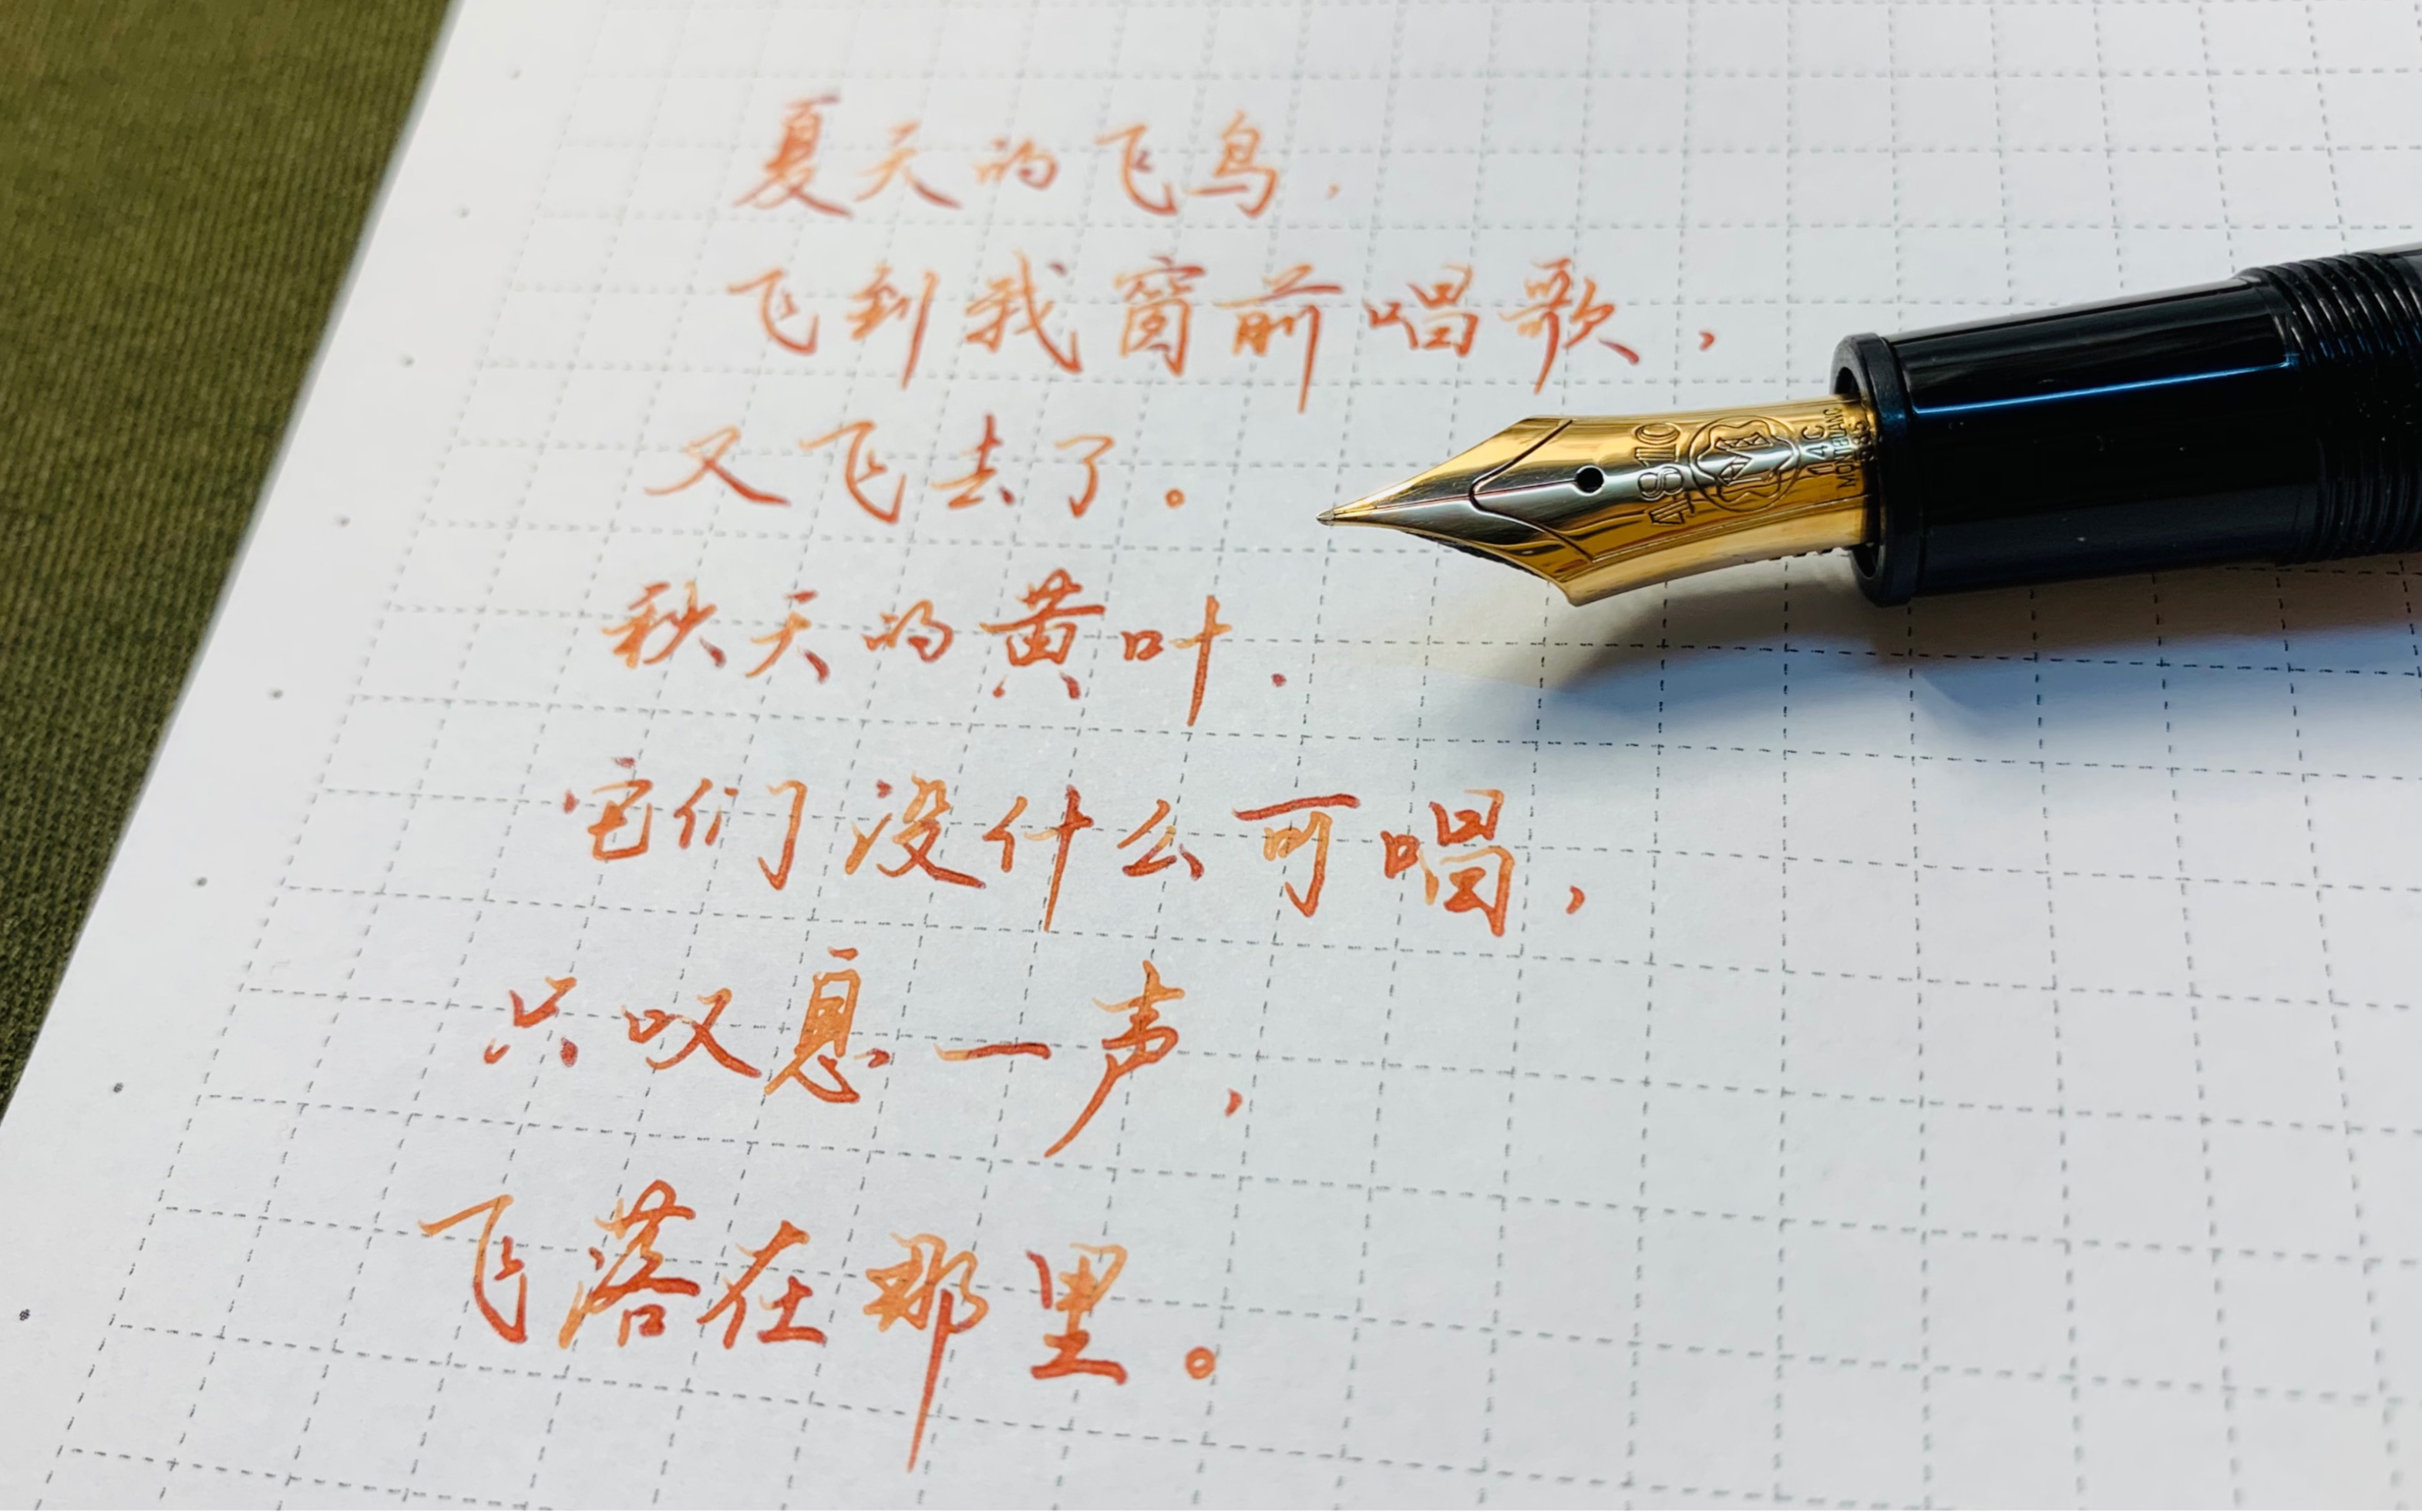 夏天的飞鸟，
飞到我窗前唱歌，
又飞去了。
秋天的黄叶，
它们没什么可唱，
只叹息一声，
飞落在那里。
4810
14C
MONTBLANC
585